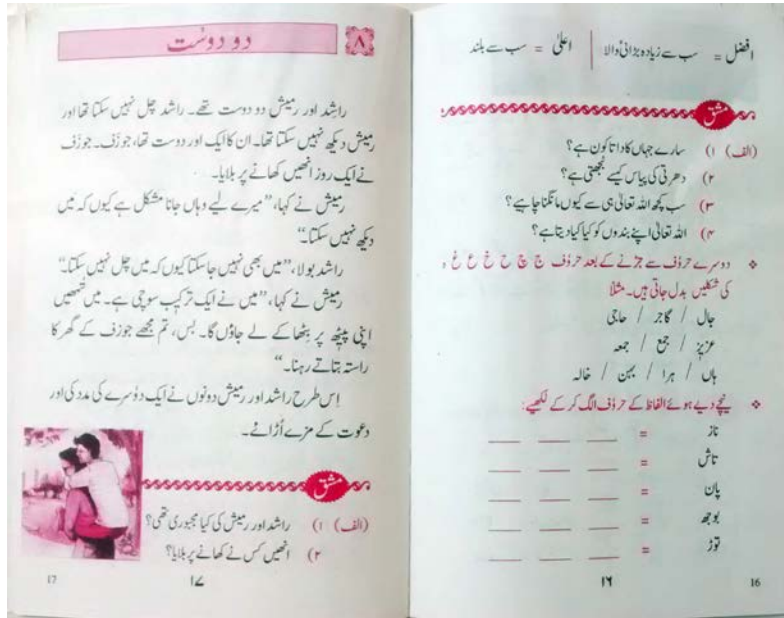 افضل = سب سے زیادہ بڑائی والا | اعلیٰ = سب سے بلند
مشق
(الف) ۱) سارے جہاں کا داتا کون ہے؟
۲) دھرتی کی پیاس کیسے بجھتی ہے؟
۳) سب کچھ اللہ تعالیٰ ہی سے کیوں مانگنا چاہیے؟
۴) اللہ تعالیٰ اپنے بندوں کو کیا کیا دیتا ہے؟
دوسرے حروف سے جڑنے کے بعد حروف ج چ ح خ ع غ ہ
کی شکلیں بدل جاتی ہیں۔ مثلاً
جال / گاجر / حاجی
عزیز / جمع / جمعہ
ہاں / ہرا / بہن / خالہ
نیچے دیے ہوئے الفاظ کے حروف الگ کر کے لکھیے:
ناز = ___ ___ ___
تاش = ___ ___ ___
پان = ___ ___ ___
بوجھ = ___ ___ ___
توڑ = ___ ___ ___
۱۶
16
۸
دو دوست
راشد اور رمیش دو دوست تھے۔ راشد چل نہیں سکتا تھا اور
رمیش دیکھ نہیں سکتا تھا۔ ان کا ایک اور دوست تھا، جوزَف۔ جوزَف
نے ایک روز انھیں کھانے پر بلایا۔
رمیش نے کہا، ”میرے لیے وہاں جانا مشکل ہے کیوں کہ میں
دیکھ نہیں سکتا۔“
راشد بولا، ”میں بھی نہیں جا سکتا کیوں کہ میں چل نہیں سکتا۔“
رمیش نے کہا، ”میں نے ایک ترکیب سوچی ہے۔ میں تمھیں
اپنی پیٹھ پر بِٹھا کے لے جاؤں گا۔ بس، تم مجھے جوزف کے گھر کا
راستہ بتاتے رہنا۔“
اِس طرح راشد اور رمیش دونوں نے ایک دوٗسرے کی مدد کی اور
دعوت کے مزے اُڑائے۔
مشق
(الف) ۱) راشد اور رمیش کی کیا مجبوری تھی؟
۲) انھیں کس نے کھانے پر بلایا؟
17
۱۷